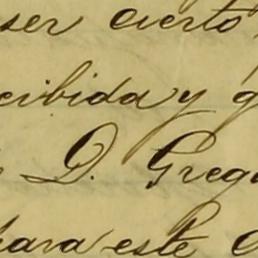 ser cierto
cibida y g
D. Grego
para este